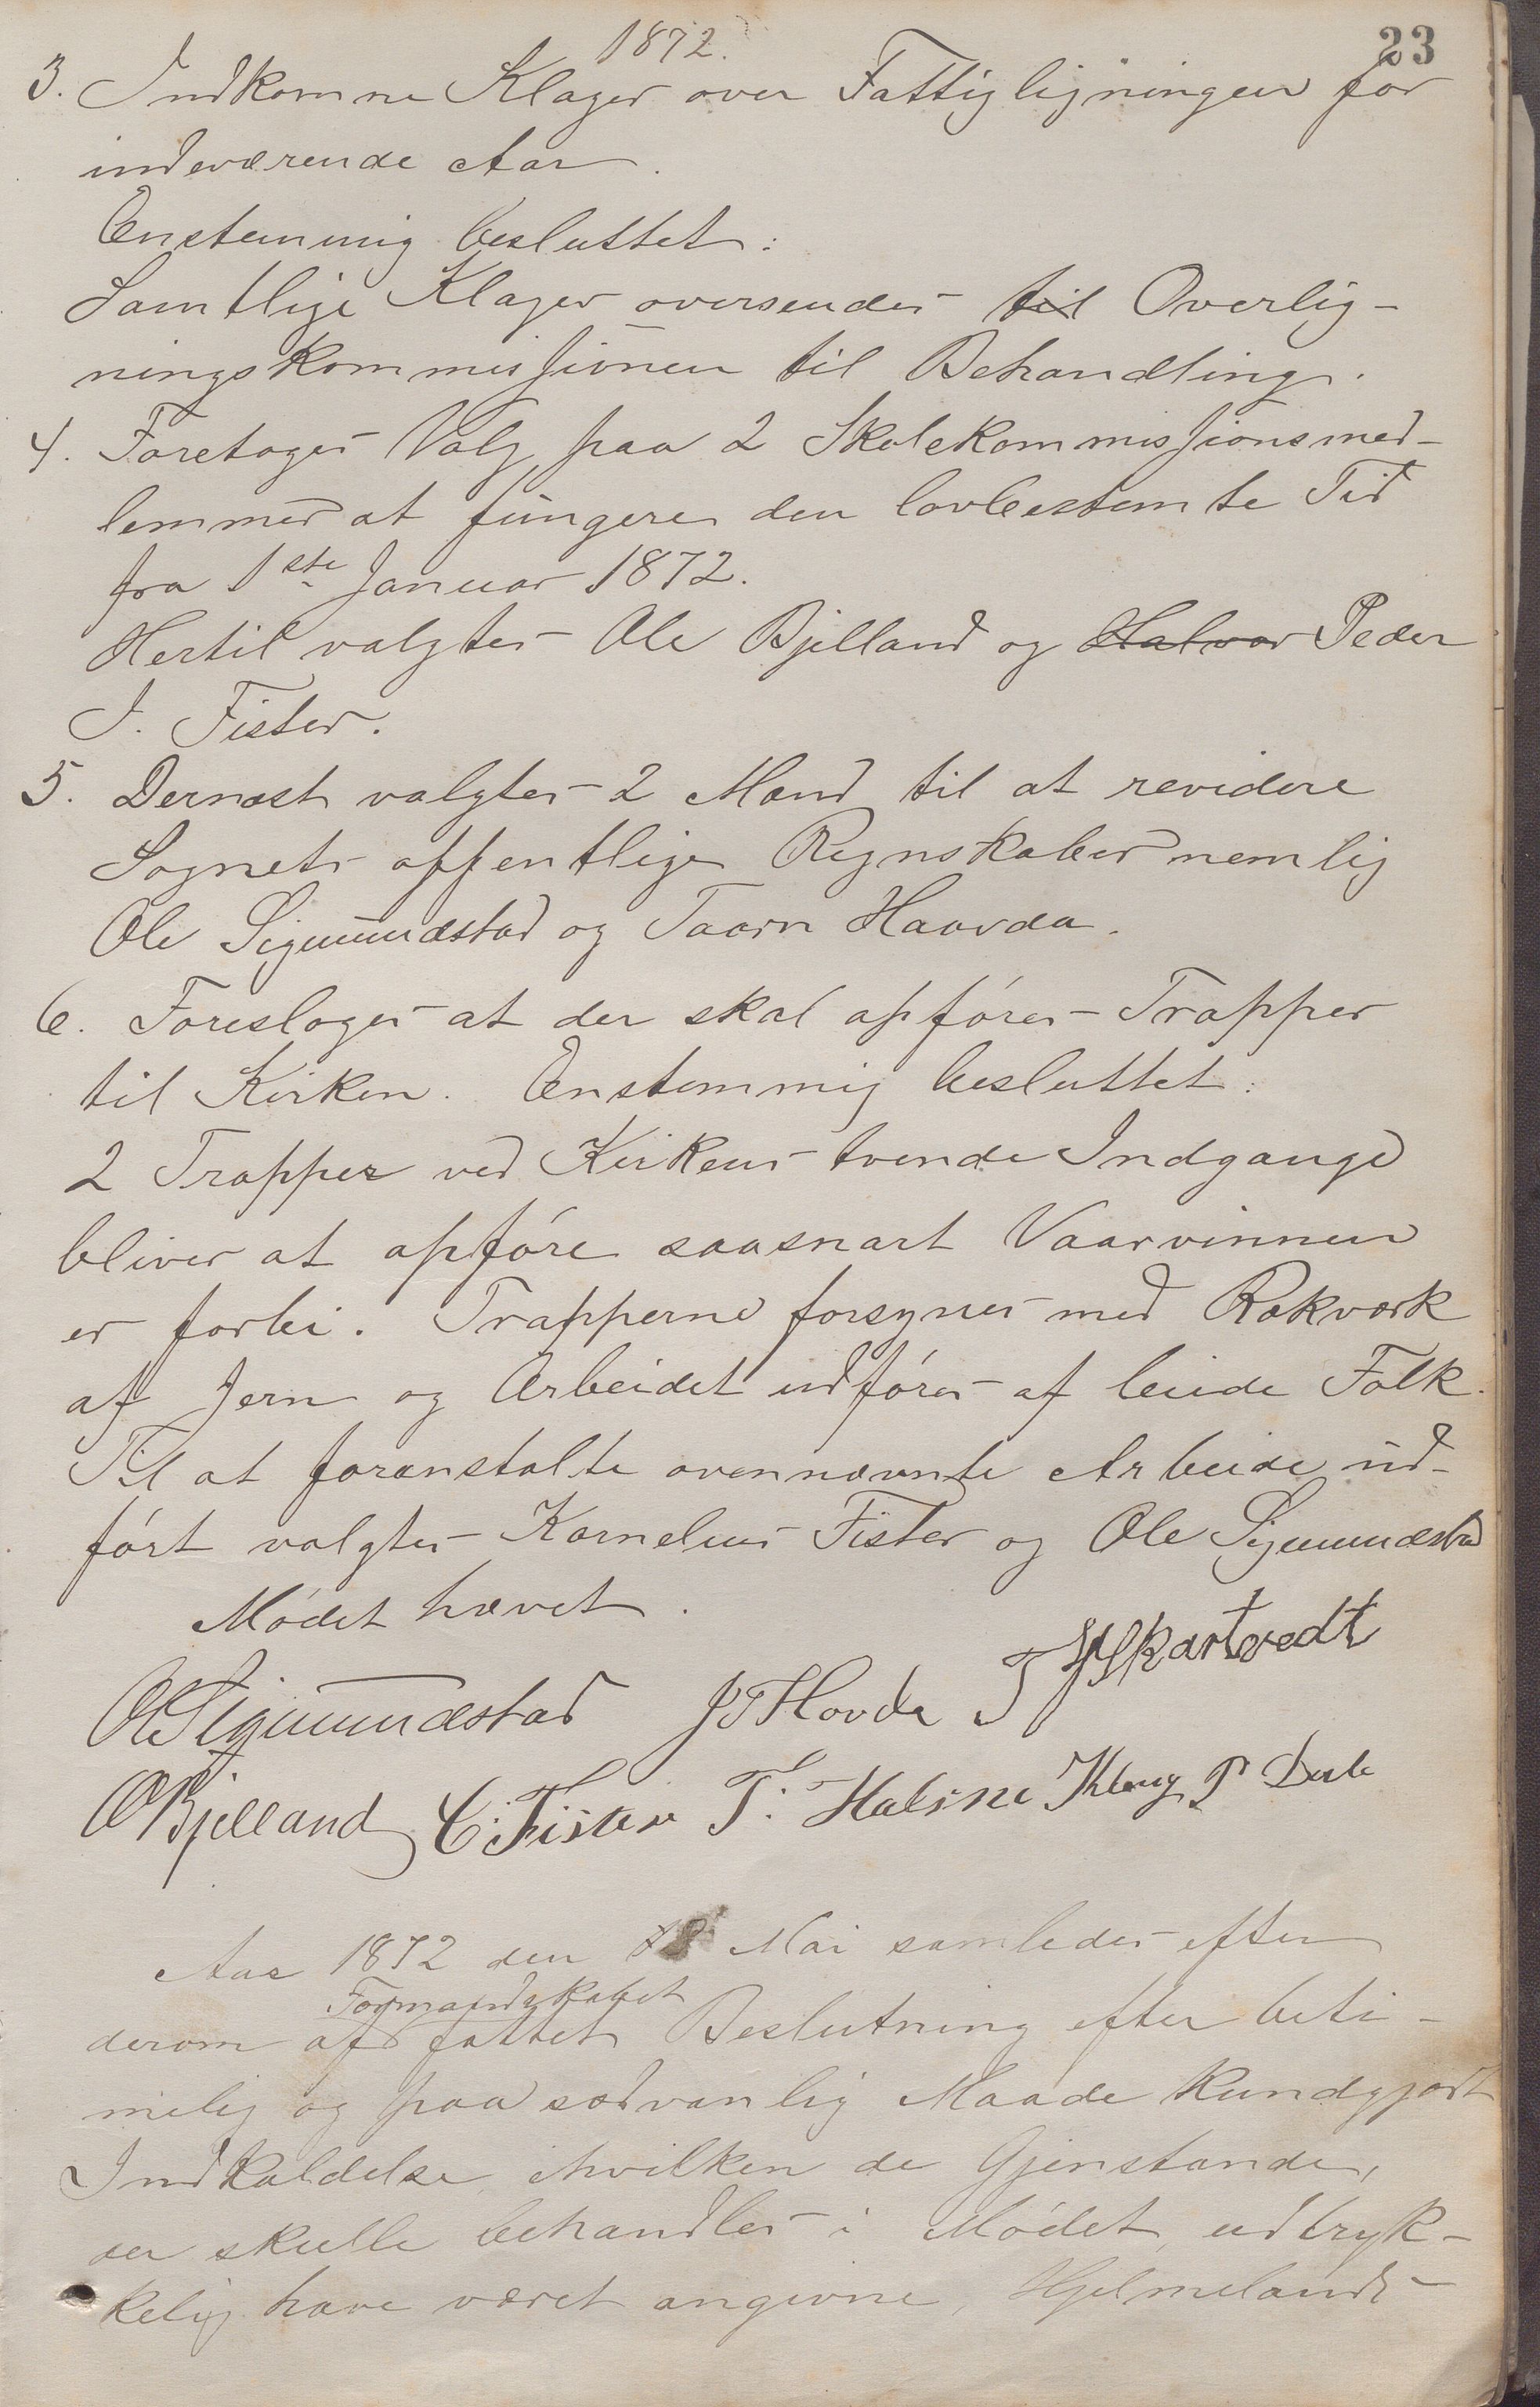 1872.
23
3. Indkomne Klager over Fattigligningen for
indeværende Aar.
Enstemmig besluttet:
Samtlige Klager oversendes til Overlig-
ningskommissionen til Behandling.
4. Foretoges Valg paa 2 Skolekommissionsmed-
lemmer at fungere den lovbestemte Tid
fra 1ste Januar 1872.
Hertil valgtes Ole Bjelland og Halvor Peder
J. Fister.
5. Dernæst valgtes 2 Mænd til at revidere
Sognets offentlige Regnskaber nemlig
Ole Sigmundstad og Taarn Haavda.
6. Foresloges at der skal opføres Trapper
til Kirken. Enstemmig besluttet:
2 Trapper ved Kirkens tvende Indgange
bliver at opføre saasnart Vaarvinnen
er forbi. Trapperne forsynes med Rækværk
af Jern og Arbeidet udføres af leiede Folk.
Til at foranstalte ovennævnte Arbeide ud-
ført valgtes Kornelius Fister og Ole Sigmundstad
Mødet hævet.
O Sigmundstad J T Hovda T Skartvedt
O Bjelland C. Fister T. Halsne P
Aar 1872 den 18 Mai samledes efter
Formandskabet
derom af fattet Beslutning efter beti-
melig og paa sædvanlig Maade kundgjort
Indkaldelse, ihvilken de Gjenstande,
der skulle behandles i Mødet, udtryk-
kelig have været angivne, Hjelmelands